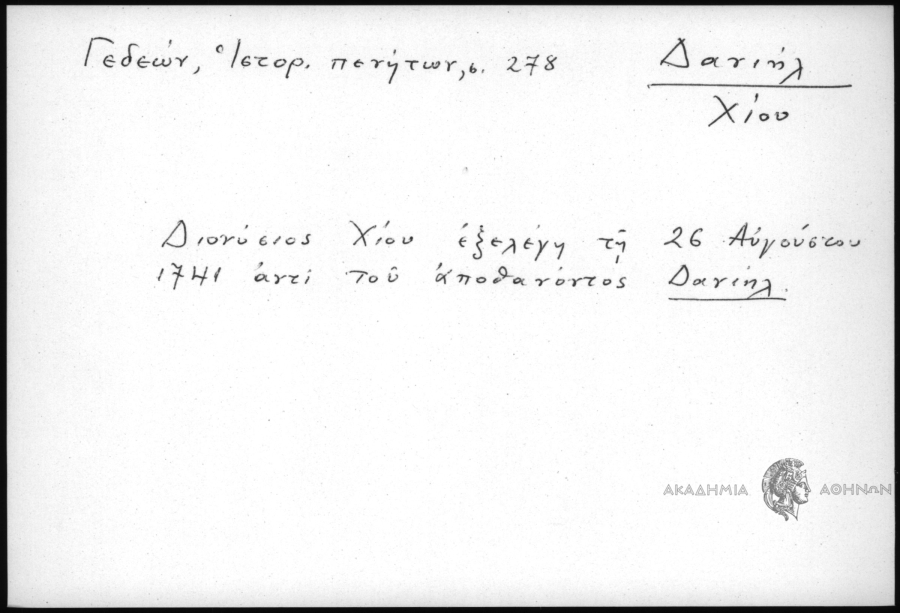 Γεδεών, Ἱστορ. πενήτων, σ. 278
Δανιήλ
Χίου
Διονύσιος Χίου ἐξελέγη τῇ 26 Αὐγούστου
1741 ἀντὶ τοῦ ἀποθανόντος Δανιήλ.
ΑΚΑΔΗΜΙΑ ΑΘΗΝΩΝ